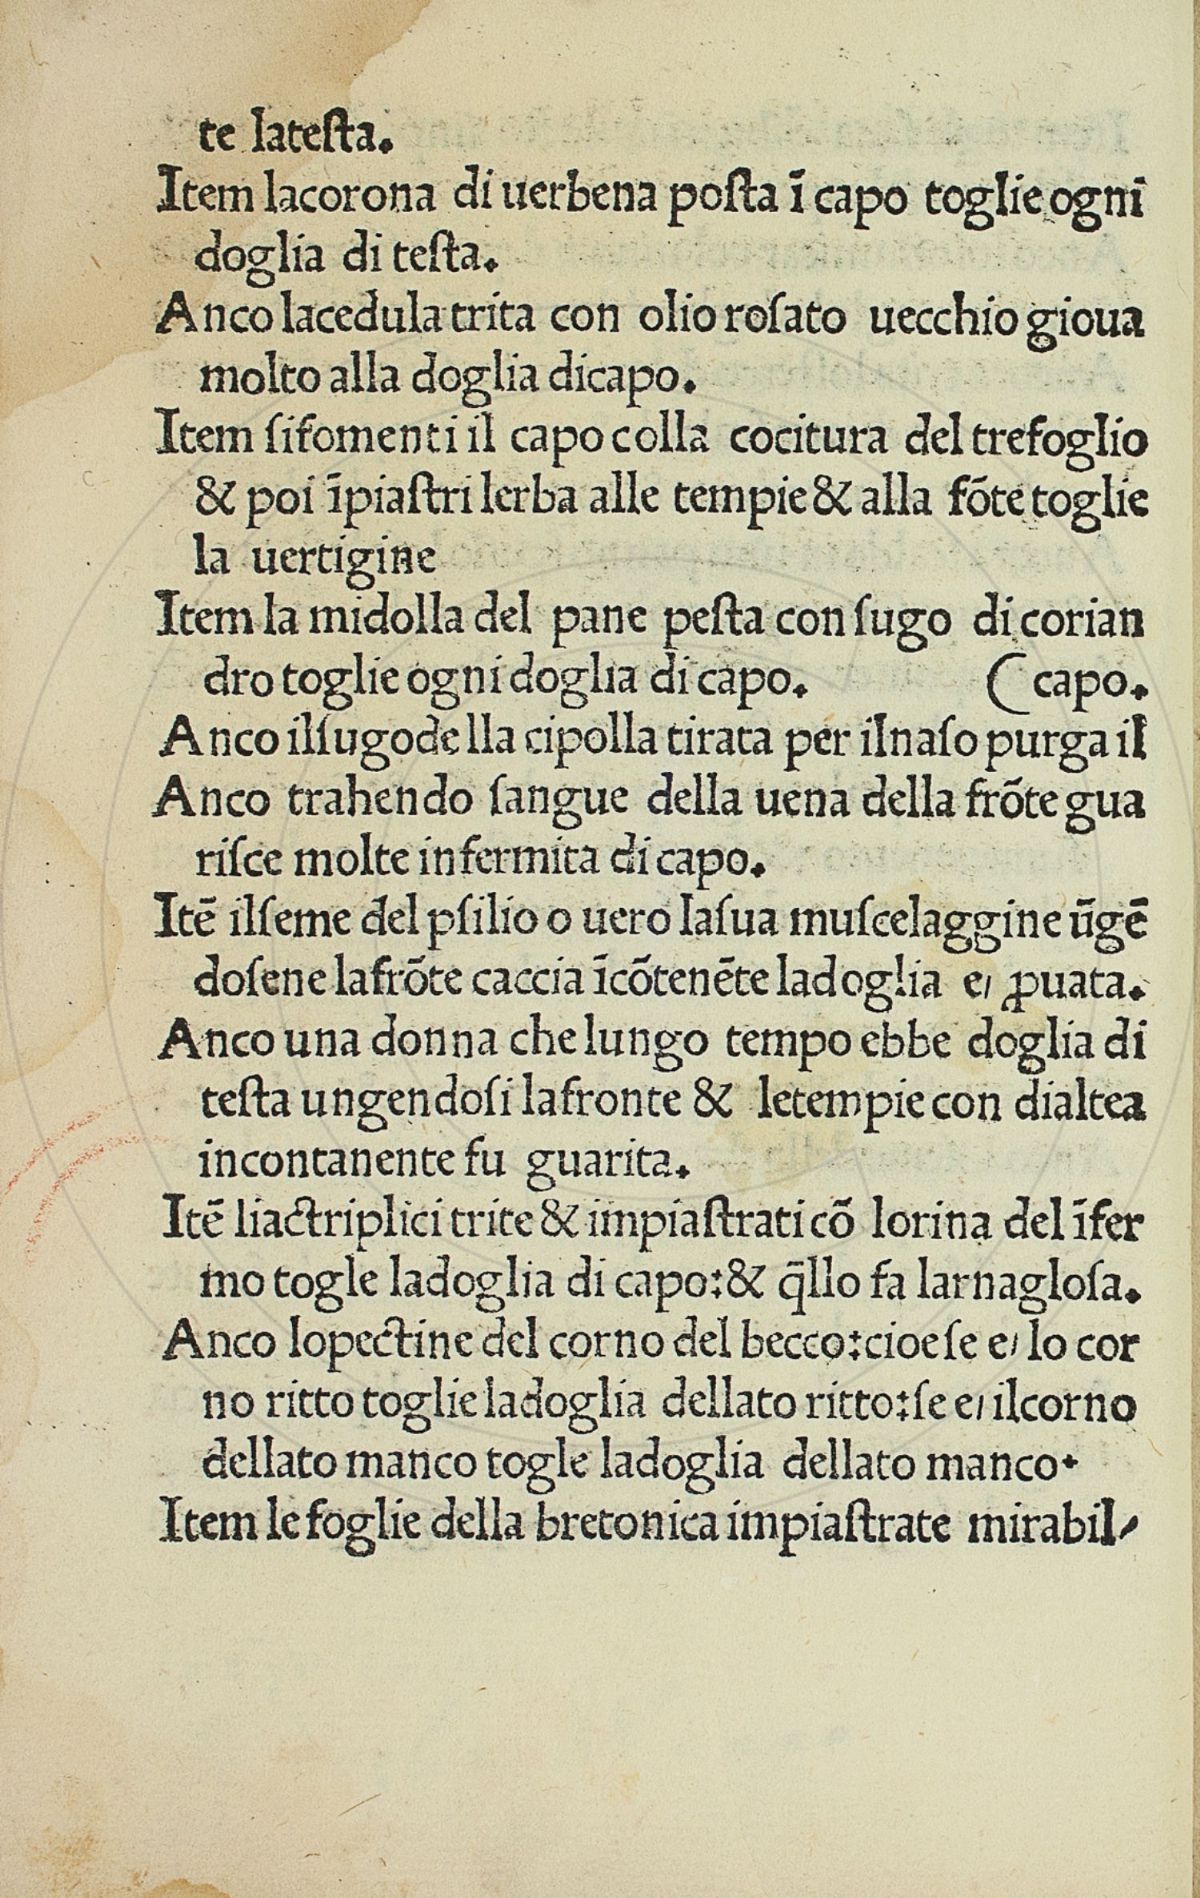 te lateſta.
Item lacorona di uerbena poſta ī capo toglie ogni
doglia di teſta.
Anco lacedula trita con olio roſato uecchio gioua
molto alla doglia dicapo.
Item ſifomenti il capo colla cocitura del trefoglio
& poi īpiaſtri lerba alle tempie & alla fōte toglie
la uertigine
Item la midolla del pane peſta con ſugo di corian
dro toglie ogni doglia di capo. (capo.
Anco ilſugo della cipolla tirata per ilnaſo purga il
Anco trahendo ſangue della uena della frōte gua
riſce molte infermita di capo.
Itē ilſeme del pſilio o uero laſua muſcelaggine ūgē
doſene lafrōte caccia īcōtenēte ladoglia e, ꝓuata.
Anco una donna che lungo tempo ebbe doglia di
teſta ungendoſi lafronte & letempie con dialtea
incontanente fu guarita.
Itē liactriplici trite & impiaſtrati cō lorina del īfer
mo togle ladoglia di capo:& q̄llo fa larnagloſa.
Anco lopectine del corno del becco:cioe ſe e, lo cor
no ritto toglie ladoglia dellato ritto:ſe e, ilcorno
dellato manco togle ladoglia dellato manco.
Item le foglie della bretonica impiaſtrate mirabil-